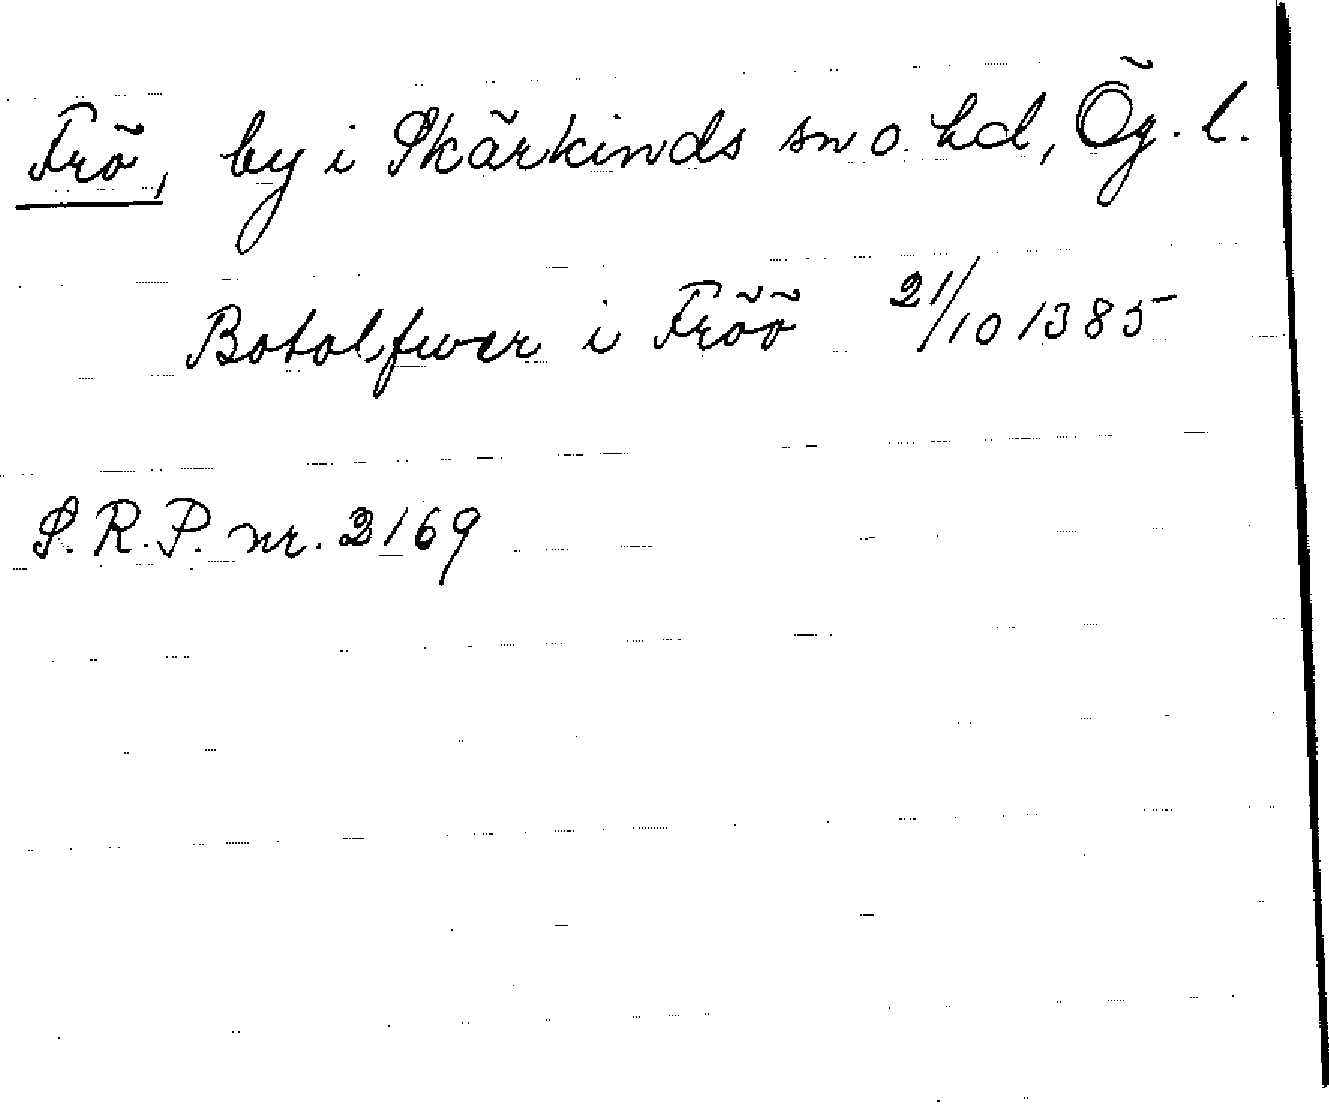 Frö, by i Skärkinds sn o. hd, Ög. l.
Botolfwer i Fröö 21/10 1385
S.R.P. nr. 2169